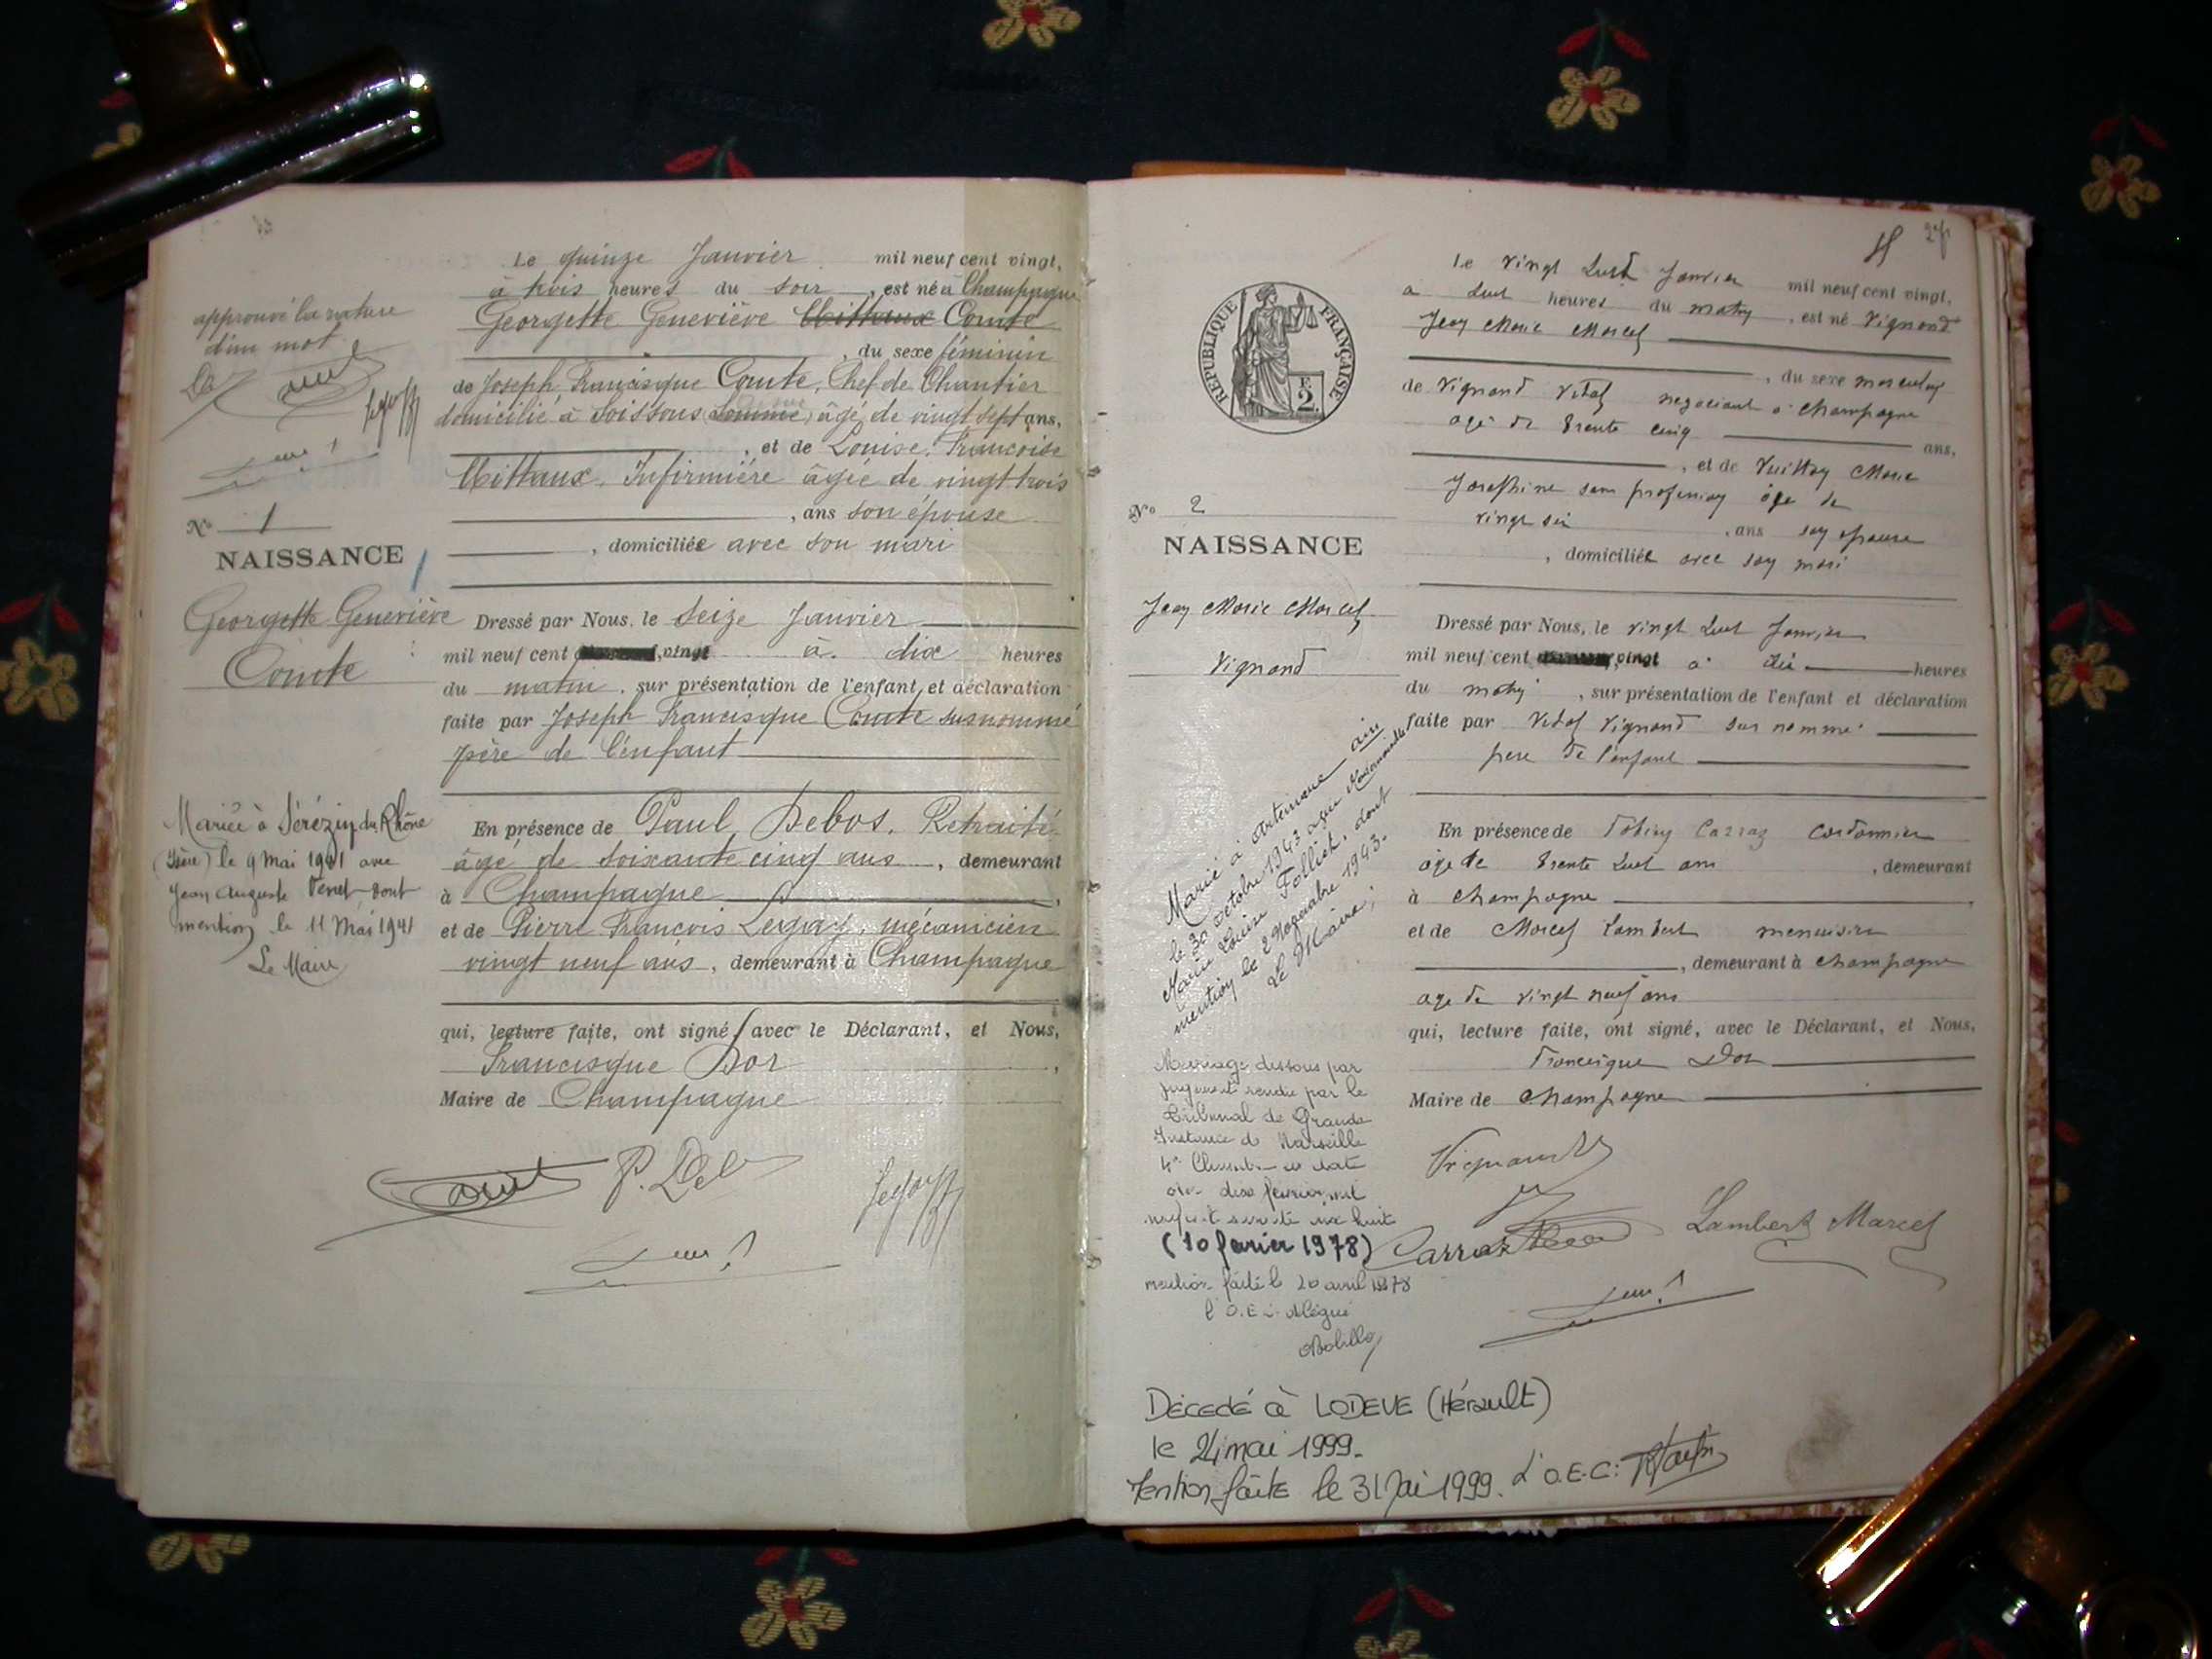 Le quinze Janvier mil neuf cent vingt,
à trois heures du soir, est né à Champagne
Georgette Geneviève Comte
, du sexe féminin
de Joseph Francisque Comte, Chef de Chantier
domicilié à Soissons, âgé de vingt sept ans,
, et de Louise Françoise
Mittaux, Infirmière âgée de vingt trois
, ans son épouse
, domiciliée avec son mari
approuvé la rature
d'un mot
No 1
NAISSANCE
Georgette Geneviève
Comte
Dressé par Nous, le seize Janvier
mil neuf cent vingt à dix heures
du matin, sur présentation de l'enfant et déclaration
faite par Joseph Francisque Comte susnommé
père de l'enfant
Mariée à Sérézin du Rhône
(Isère) le 9 mai 1941 avec
Jean Auguste dont
mention le 11 Mai 1941
Le Maire
En présence de Paul Debos, Retraité
âgé de soixante cinq ans, demeurant
à Champagne
et de Pierre François Legay, mécanicien
vingt neuf ans, demeurant à Champagne
qui, lecture faite, ont signé avec le Déclarant, et Nous,
Francisque Dor
Maire de Champagne
Comte P. Deb
RÉPUBLIQUE FRANÇAISE
E
2
Le vingt huit Janvier mil neuf cent vingt,
a huit heures du matin, est né Vignand
Jean Marie Marcel
, du sexe masculin
de Vignand Vital negociant a champagne
agé de trente cinq ans,
, et de Vuittoz Marie
Josephine sans profession âge de
vingt six, ans son epouse
, domiciliée avec son mari
No 2
NAISSANCE
Jean Marie Marcel
Vignand
Dressé par Nous, le vingt huit Janvier
mil neuf cent vingt a dix heures
du matin, sur présentation de l'enfant et déclaration
faite par Vital Vignand sus nommé
pere de l'enfant
Marié à Artemare Ain
le 30 octobre 1943 avec Mademoiselle
Marie Louise Folliet, dont
mention le 2 Novembre 1943.
Le Maire,
En présence de Carraz cordonnier
âge de trente huit ans, demeurant
à champagne
et de Marcel Lambert menuisier
, demeurant à champagne
age de vingt neuf ans
qui, lecture faite, ont signé, avec le Déclarant, et Nous,
Francisque Dor
Maire de champagne
Mariage dissous par
jugement rendu par le
Tribunal de Grande
Instance de Marseille
4e Chambre en date
du dix février mil
neuf cent soixante dix huit
(10 février 1978)
mention faite le 20 avril 1978
l'O.E.C. délégué
Vignand
Carraz
Lambert Marcel
Décédé à LODEVE (Hérault)
le 24 mai 1999.
Mention faite le 31 Mai 1999. L'O.E.C: